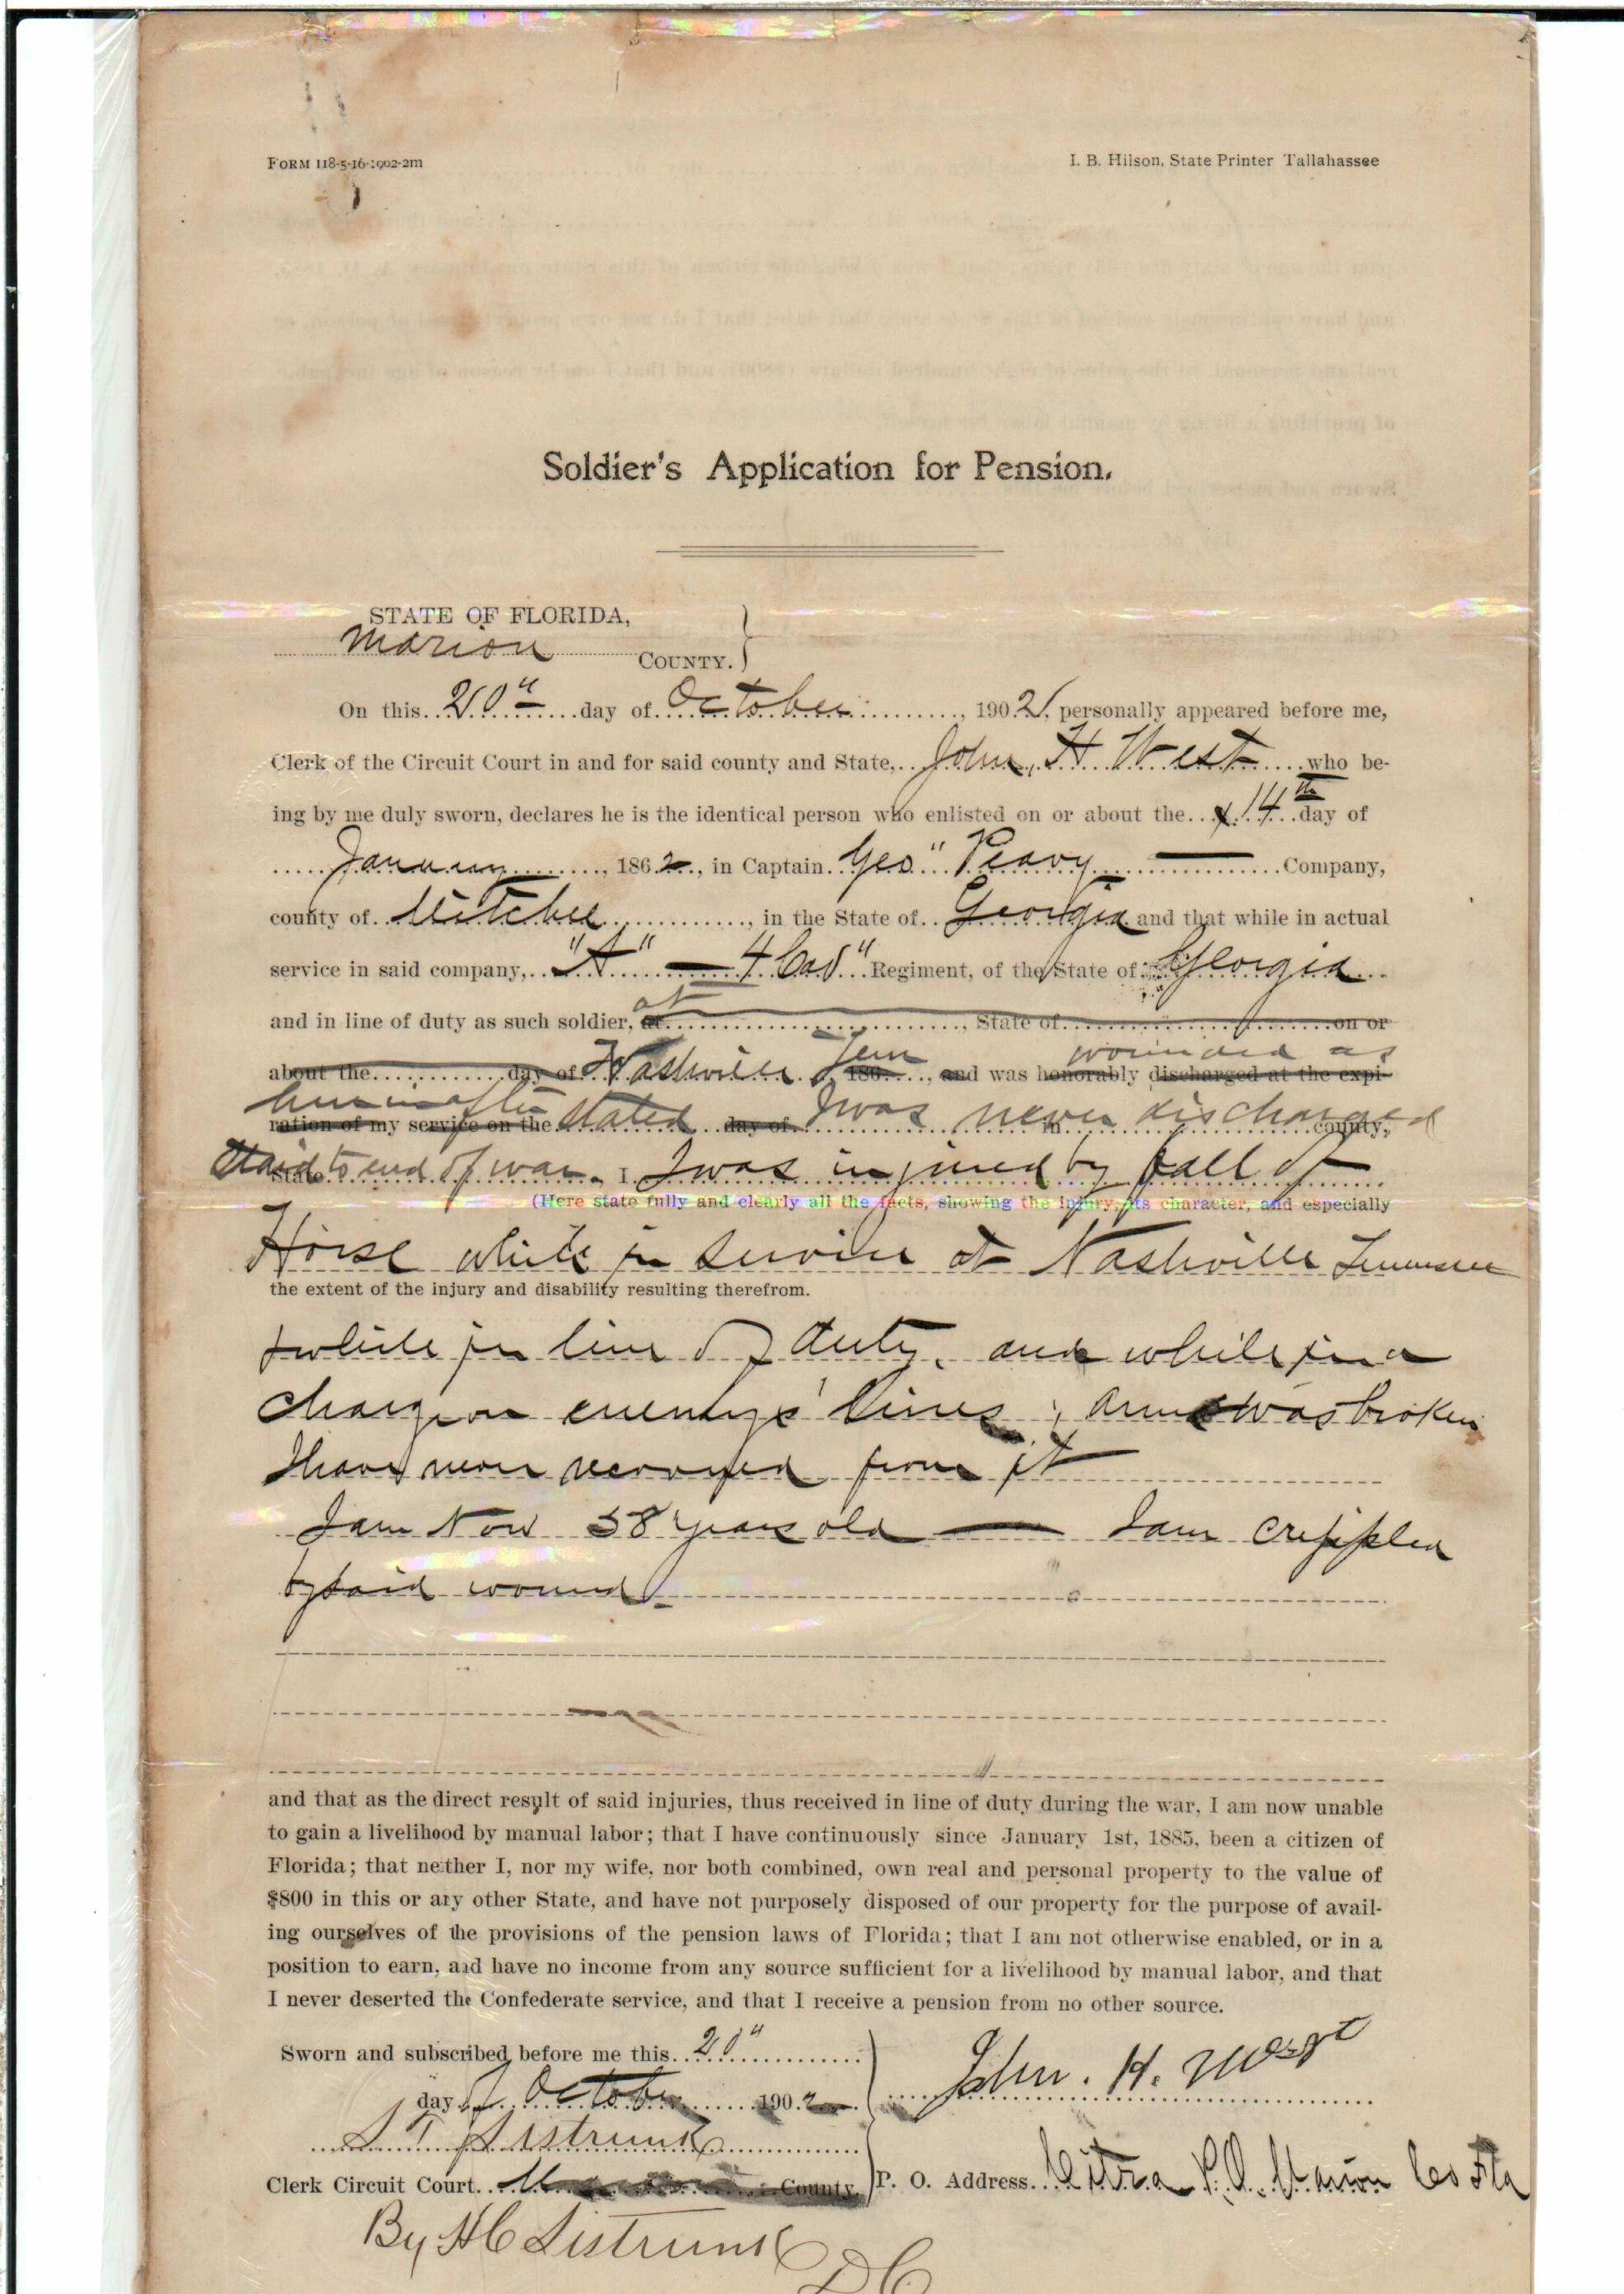 FORM 118-5-16-1902-2m
I. B. Hilson, State Printer Tallahassee
Soldier's Application for Pension.
STATE OF FLORIDA,
Marion COUNTY. }
On this 20" day of October, 1902, personally appeared before me,
Clerk of the Circuit Court in and for said county and State, John, H West who be-
ing by me duly sworn, declares he is the identical person who enlisted on or about the 14th day of
January, 1862, in Captain Geo" Peavy Company,
county of Mitchel, in the State of Georgia and that while in actual
service in said company, "A" — 4 Cav" Regiment, of the State of Georgia
and in line of duty as such soldier, at at, State of on or
about the day of Nashville Tenn 186, and was honorably discharged at the expi- wounded as
ration of my service on the hereinafter stated day of I was never discharged in county,
State staid to end of war. I, I was injured by fall of
(Here state fully and clearly all the facts, showing the injury, its character, and especially
Horse while in service at Nashville Tennessee
the extent of the injury and disability resulting therefrom.
while in line of duty, and while in a
charge on enemy's lines; arm was broken
I have never recovered from it
I am Now 58 years old — I am crippled
by said wound.
and that as the direct result of said injuries, thus received in line of duty during the war, I am now unable
to gain a livelihood by manual labor; that I have continuously since January 1st, 1885, been a citizen of
Florida; that neither I, nor my wife, nor both combined, own real and personal property to the value of
$800 in this or any other State, and have not purposely disposed of our property for the purpose of avail-
ing ourselves of the provisions of the pension laws of Florida; that I am not otherwise enabled, or in a
position to earn, and have no income from any source sufficient for a livelihood by manual labor, and that
I never deserted the Confederate service, and that I receive a pension from no other source.
Sworn and subscribed before me this 20"
day of October 1902
John. H. West
S T Sistrunk
Clerk Circuit Court County.
P. O. Address. Citra P.O. Marion Co Fla
By H C Sistrunk
D C